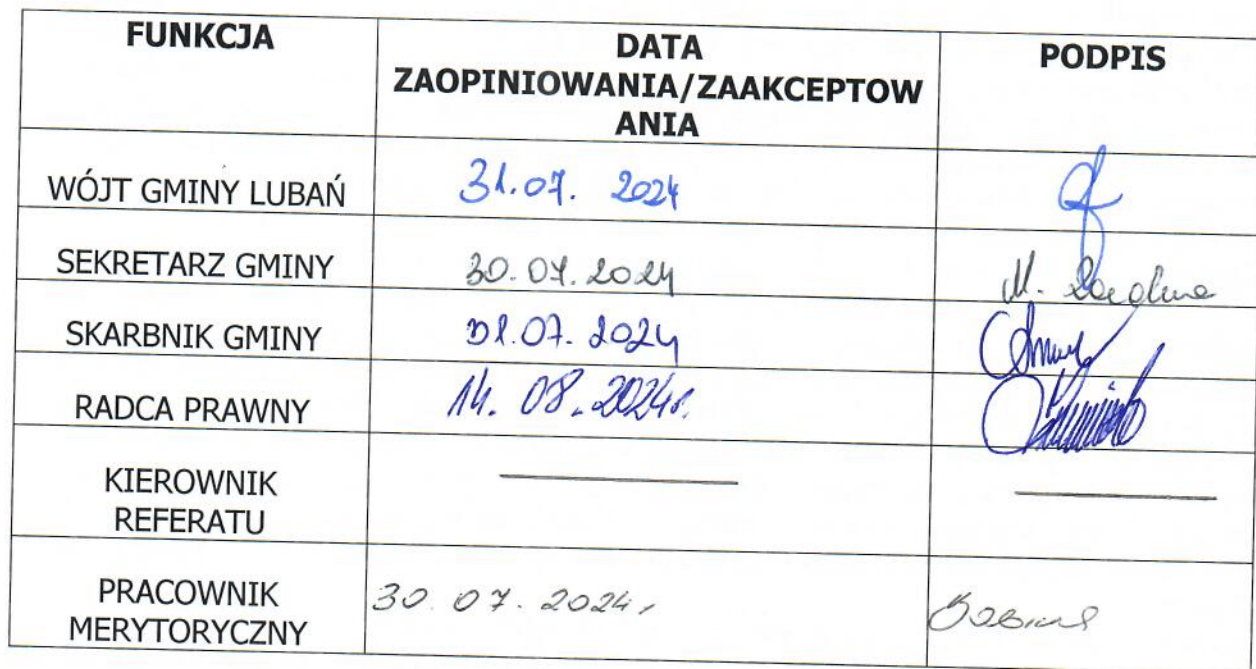 FUNKCJA
DATA
ZAOPINIOWANIA/ZAAKCEPTOW
ANIA
PODPIS
WÓJT GMINY LUBAŃ
31.07. 2024
SEKRETARZ GMINY
30.07.2024
M.
SKARBNIK GMINY
31.07.2024
RADCA PRAWNY
14. 08.2024r.
KIEROWNIK
REFERATU
PRACOWNIK
MERYTORYCZNY
30.07.2024r